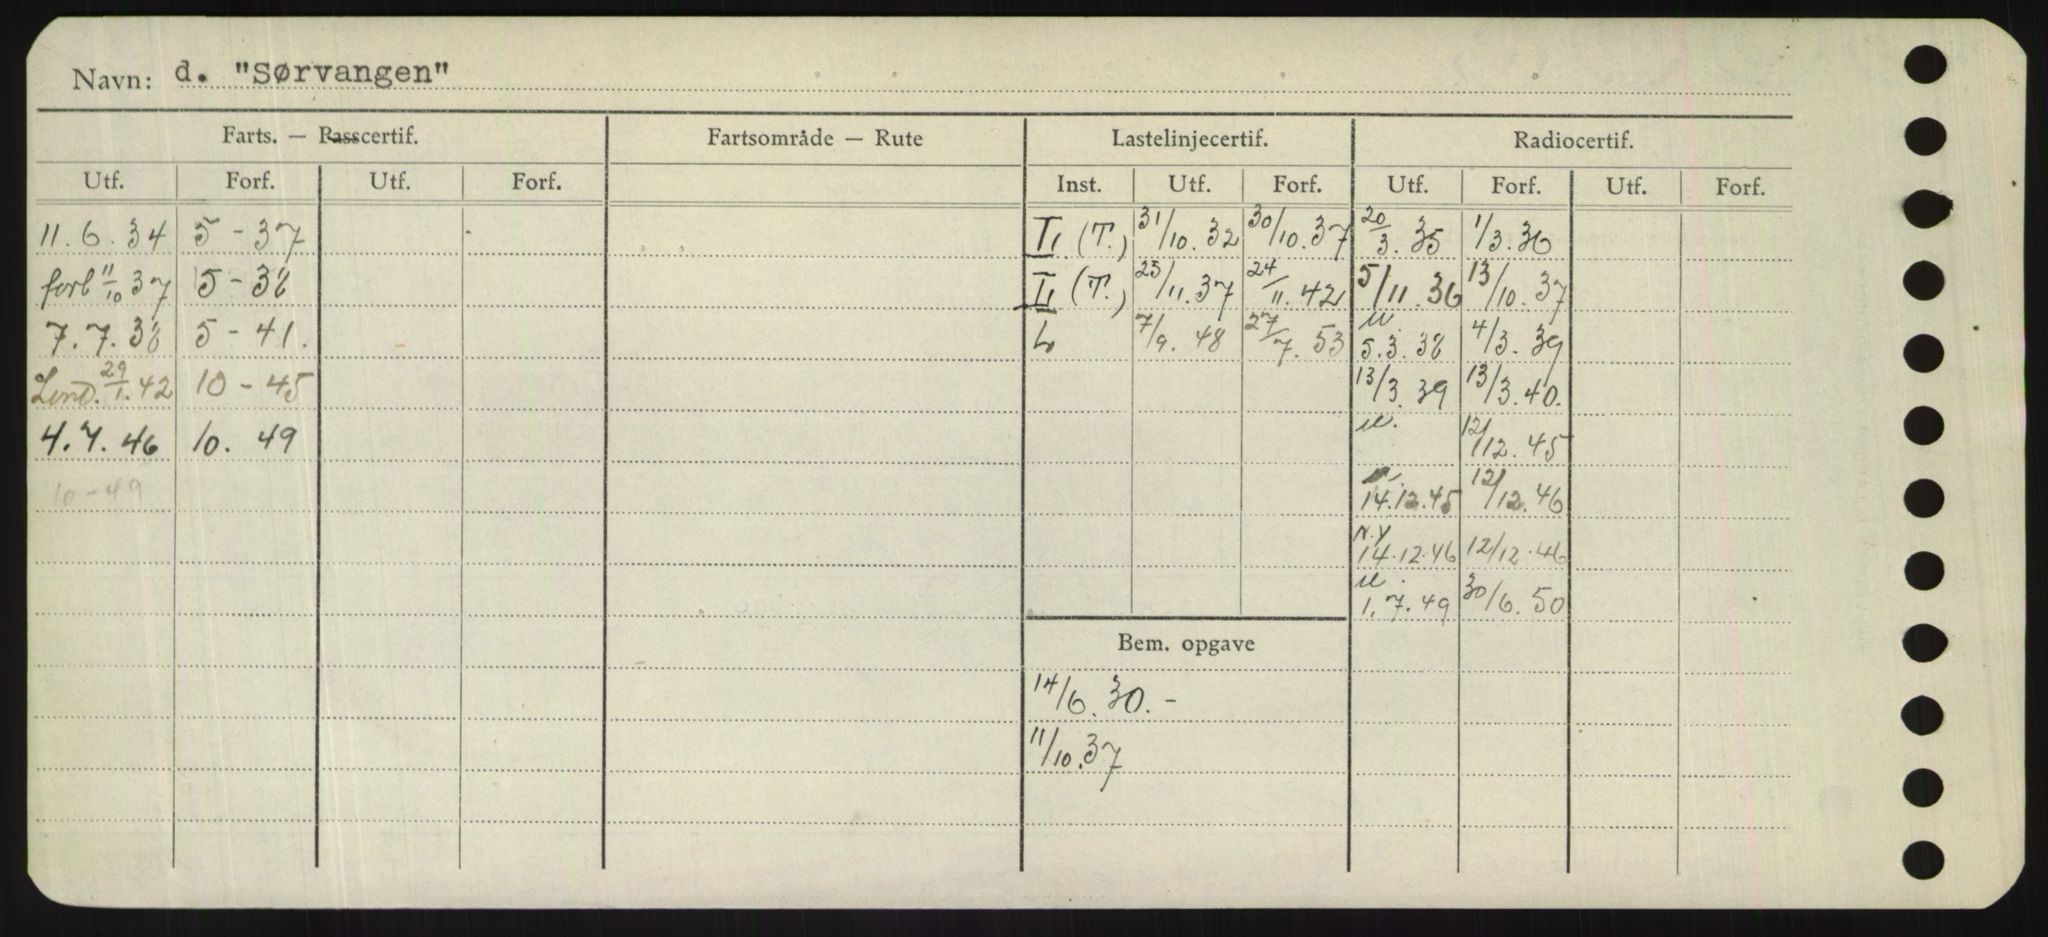 Navn: d. "Sørvangen"
Farts. — Passcertif. Fartsområde — Rute Lastelinjecertif. Radiocertif.
Utf. Forf. Utf. Forf. Inst. Utf. Forf. Utf. Forf. Utf. Forf.
11.6.34 5-37 (T.) 31/10.32 30/10.37 20/3.35 1/3.36
forl 11/10 37 5-38 (T.) 25/11.37 24/11.42 5/11.36 13/10.37
7.7.38 5-41. L 7/9.48 27/7.53 5.3.38 4/3.39
Lond. 29/1.42 10-45 13/3.39 13/3.40.
4.7.46 10.49 12/12.45
10-49 14.12.45 12/12.46
N.Y
14.12.46 12/12.46
1.7.49 30/6.50
Bem. opgave
14/6.30.-
11/10.37